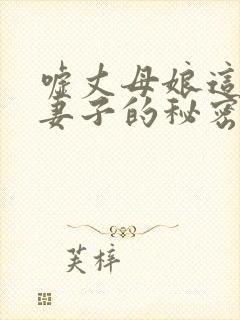 嘘丈母娘這
妻子的秘密
芙梓